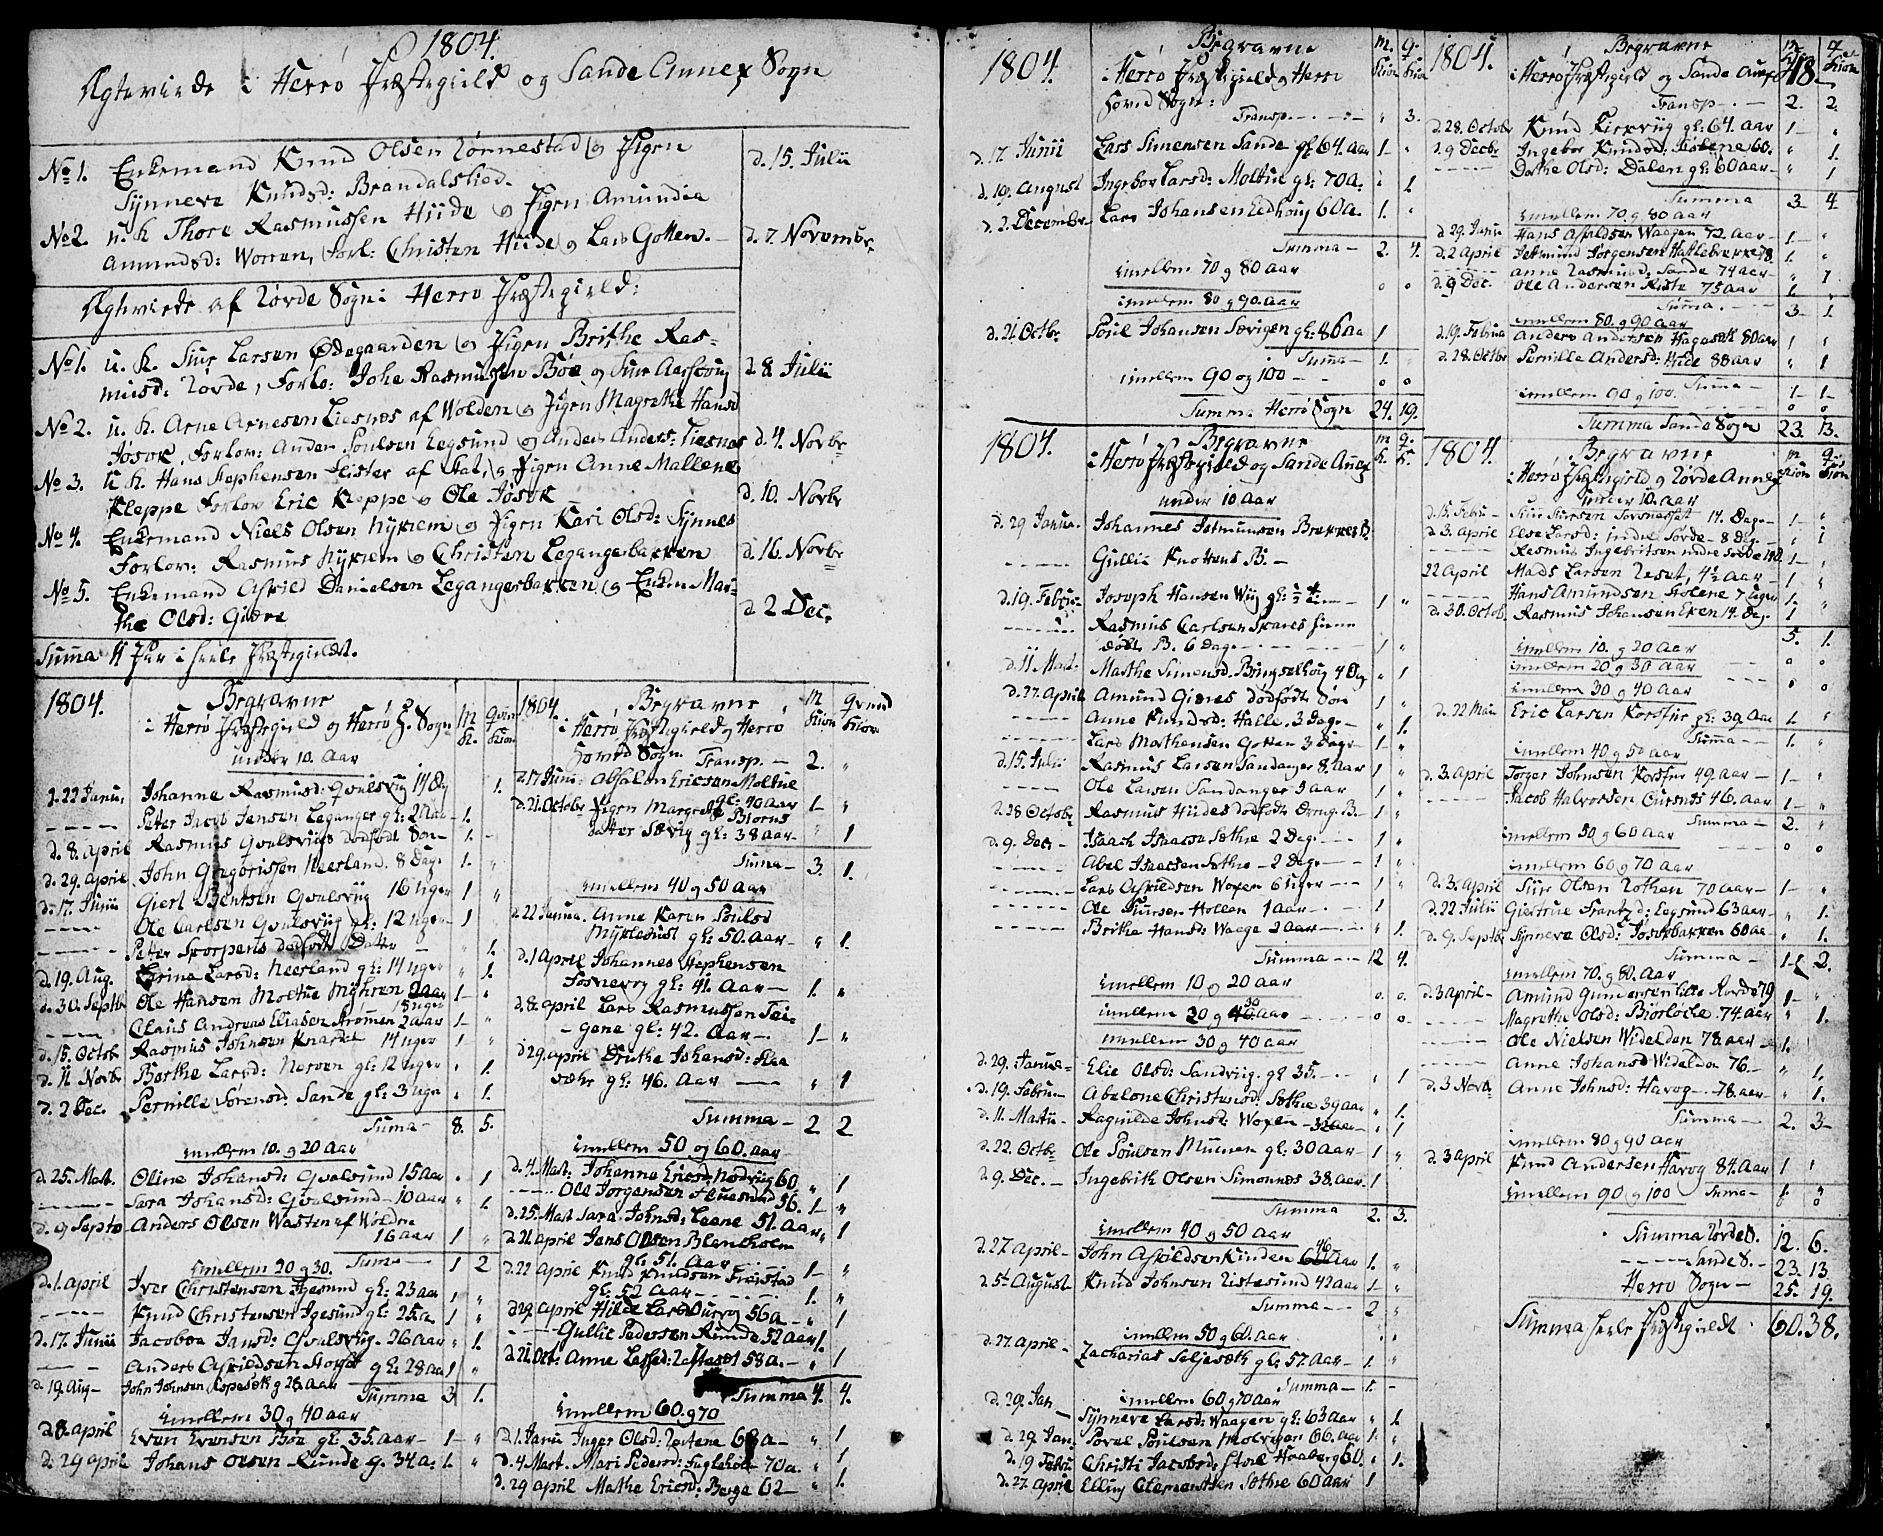 1804.
Ægteviede i Herrø Præstegield og Sande Annex Sogn
No 1. Enkemand Knud Olsen Rønnestad og Pigen d. 15. Julii
Synneve Knudsd: Brandalslied.
No 2. u. k Thore Rasmussen Hiide og Pigen Amundia d. 7. Novembr
Amundsd: Worren, forl: Christen Hiide og Lars Gotten.
Ægteviede af Rövde Sogn i Herrø Præstegield:
No 1. u. K. Siur Larsen Ødegaarden og Pigen Brithe Ras- d. 8. Julii
musd: Rövde, Forlo: Johe Rasmussen Böe og Siur Aarsvog
No 2. u. K. Arne Arnesen Liesnæs af Wolden og Pigen Magrethe Hansd d. 4. Novbr
Jøsok, Forlov: Anders Poulsen Eegsund og Anders Anders: Liesnæs
No 3. u K. Hans Stephensen Flister af Stat, og Pigen Anne Mallene d. 10. Novbr
Kleppe Forlov Eric Kleppe og Ole Jøsok
No 4. Enkemand Niels Olsen Nykrem og Pigen Kari Olsd: Synnes d. 16. Novbr
Forlov: Rasmus Nykrem og Christen Legangerbakken
No 5. Enkemand Askild Danielsen Legangerbakken og Enken Mar- d. 2 Dec.
the Olsd: Gidre
Summa 11 Par i heele Præstegieldet.
1804. Begravne i Herrø Præstegield og Herrø H. Sogn M K. Qvin Kiøn
under 10. Aar
d. 22 Janu. Johanne Rasmusd: Qvalsvig 14 Dg 1.
Peter Jacob Jensen Leganger gl: 2 Aar 1.
d. 8. April Rasmus Qvalsvigs dødfødt Søn 1.
d. 29. April John Gregorissen Neerland. 8 Dage 1.
d. 17. Junii Giert Bentsen Qvalsviig 16 Uger 1
Ole Carlsen Qvalsviig gl: 12 uger 1
Peter Skorpens dødfødt Datter 1.
d. 19. Aug. Karina Larsd: Neerland gl: 14 uger 1.
d. 30. Septbr Ole Hansen Moltue Myhren 2 aar 1
Claus Andreas Eliasen Strømen 2 aar 1
d. 15. Octob Rasmus Johnsen Knardal 14 uger 1
d. 11 Novbr Borthe Larsd: Nerøen gl: 12 uger 1.
d. 2 Dec. Pernille Sörensd: Sande gl: 3 uger 1.
Suma 8. 5.
imellem 10. og 20 Aar
d. 25. Mart. Oline Johansd: Qvalsund 15 Aar 1
Sara Johansd: Qvalsund 10 aar 1
d. 9 Septbr Anders Olsen Wasten af Wolden
16 aar 1
Suma 1 2
imellem 20 og 30.
d. 1. April Iver Christensen Igesund gl: 23 aar 1
Knud Christensen Igesund gl: 25 a. 1
d. 17. Junii Jacobea Jansd: Qvalsviig 26 Aar 1.
Anders Askildsen Storsæt gl: 28 aar 1
d. 19. Aug John Johnsen Ropesæth g 28 Aar
Summa 3 1.
imellem 30 og 40 aar
d. 8. April Even Evensen Böe gl: 35. aar 1
d. 29 April Johans Olsen Runde g. 34 a: 1.
1804 Begravne i Herrø Præstegield og Herrø Hoved Sogn. M Kiøn Qvind Kiøn
Transp. 2.
d. 17 Junii Absalon Ericsen Moltue
gl: 40 aar 1
d. 21. Octobr Pigen Margrethe Biorns
datter Sævig gl: 38 aar 1
Suma 3. 1.
imellem 40 og 50 aar
d. 22 Janua. Anne Karen Poulsd
Myklebust gl: 50. Aar 1.
d. 1 April Johannes Stephensen
Fosnavog gl: 41. Aar 1.
d. 8. April Lars Rasmussen Tei-
gene gl: 42. Aar 1
d. 29. april Drithe Johansd: Flaa
sæter gl: 46. Aar 1
Summa 2 2
imellem 50 og 60. aar
d. 4. Mart: Johanna Ericsd: Nordviig 60 1
Ole Jørgensen Fluesund 56. 1
d. 25. Mart Sara Johnsd: Leene 51. Aar 1
d. 21 April Jens Olsen Blankholm
gl: 51. Aar
d. 22 April Knud Knudsen Frøistad
gl: 52 aar 1.
d. 29. April Hilde Larsd Ourvog 56 a 1
Gullic Pedersen Runde 52 aar 1.
d. 21. Oct: Anne Larsd: Røstædt 58 a. 1
Summa 4. 4.
imellem 60. og 70
d. 1. Janu Inger Olsd: Røstene 68 a 1
d. 4. Mart. Mari Pedersd: Fugleholt 70 a. 1
d. 29 april Mathe Ericsd: Berge 62 1.
1804. Begravne i Herrø Præstegield og Herrø Hoved Sogn: M. Kiøn Q. Kiøn
Transp. 3.
d. 17. Junii Lars Simensen Sande gl 64. aar 1
d. 19. August Ingebor Larsd: Moltue gl: 70 A: 1.
d. 2. December Lars Johansen Eedhoug 60 a. 1.
Summa 2. 4.
imellem 70 og 80 aar o o
imellem 80 og 90. aar
d. 21. Octbr. Poul Johansen Særigen gl: 86 aa 1
Suma 1.
imellem 90 og 100 o o
Summa Herrø Sogn 24. 19.
1804. Begravne i Herrø Præstegield og Sande Anex M K. Q. K.
under 10 Aar
d. 29 Janua. Johannes Jetmunsen Brekkes B.
Gullic Knottens B.
d. 19. Februa Joseph Hansen Wiig gl: 1/2 1
Rasmus Carlsen Skares hiem
døbt B. 6 Dage 1
d. 11 Mart. Marthe Simensd. Bringselhoug 4 Dag 1
d. 27. April Amund Gienes dødfødt Søn 1
Anne Knudsd: Halle. 3 Dage 1.
Lars Mathensen Gotten 3 Dage 1
d. 15. Julii Rasmus Larsen Sandanger 8. aar 1
Ole Larsen Sandanger 3 aar 1
d. 28 October Rasmus Hiides dødfødt Dreng. B. 1
d. 9. Dec Isaach Isaacsen Sæthre 2 Dage 1
Abel Isacsen Sæthre 2 Dage 1
Lars Askildsen Woxen 6 Uger 1
Ole Siursen Hollen 1 aar 1
Brithe Hansd: Waage 2 aar 1
Summa 12 4.
imellem 10 og 20 aar o. o.
imellem 20 og 30 aar o o.
imellem 30 og 40 aar
d. 29. Janua Elie Olsd: Sandviig. gl 35. 1
d. 19. Februa Abelone Christensd: Sæthre 39 aar 1.
d. 11. Martii Ragnilde Johnsd: Woxen 32 aar 1
d. 22. Octbr Ole Poulsen Muenen gl: 30 Aar 1
d. 9. Dec. Ingebrith Olsen Simonnæs 38. aar 1
Summa 2. 3.
imellem 40 og 50 Aar
d. 27 April John Askildsen Kinden 46 aar 1.
d. 5te August Knud Johnsen Ristesund 42 aar 1
Summa 2
imellem 50 og 60. Aar
d. 27. april Zacharias Seljesæth gl: 57. Aar 1.
Summa 1.
imellem 60 og 70 Aar
d. 29. Jan Synneve Larsd: Waagen gl: 63 Aar 1.
d. 29. Jan. Povel Poulsen Molvigen 66. aar 1
d. 19 Febru Christi Jacobsd: Store Haaberg 60. 1.
d. 27. april Elling Clementsen Sæthre 60 aar 1
1804. Begravne i Herrø Præstegield og Sande Anex M Kiøn Q Kiøn 18
Transp. 2. 2.
d. 28. Octobr Knud Kirkviig gl: 64. Aar 1
d. 9 Decbr Ingebor Knudsd: Stølene 60. 1.
Dorthe Olsd: Dalen gl: 60 aar 1
Summa 3 4.
imellem 70 og 80 aar
d. 29. Janu Hans Askildsen Waagen 72. Aar 1
d. 2 april Jetmund Jørgensen Hatlebrekke 78. 1.
Anne Rasmusd: Sande 74 aar 1
d. 9 Dec. Ole Andersen Riste 75 aar 1.
Suma. 3 1.
imellem 80. og 90 aar
d. 19. Februa Anders Andersen Hagesæth 80 aar 1
d. 28. Octbr Pernille Andersd: Hide 88 aar 1
Suma 1 1
imellem 90 og 100. o o
Summa Sande Sogn 23. 13.
1804. Begravne i Herrø Præstegield og Rövde Annex M Kiøn Q. Kiøn
under 10. aar
d. 15. Febru Siur Siursen Sørsnæsset 14. Dage 1
d. 3. April Else Larsd: indre Rövde 8 Dag 1
Rasmus Ingebritsen indre Rövde
22 April Mads Larsen Reset, 4½ Aar 1
Hans Amundsen Stølene 7 Uger 1.
d. 30. Octob. Rasmus Johansen Eken 14. Dag. 1
5. 1.
imellem 10. og 20 Aar o o
imellem 20 og 30 aar o o
imellem 30 og 40 Aar
d. 22 Mai Eric Larsen Korsfur gl: 39 Aar 1.
Suma 1.
imellem 40 og 50 aar
d. 3. April Torger Johnsen Korsfur 49. aar 1
Jacob Halvorsen Cursnæs 46. aar 1
Summa 2.
imellem 50 og 60 Aar o o
imellem 60 og 70 Aar
d. 3. April Siur Olsen Rothen 70 aar 1
d. 22 Julii Giertrue Frantzd: Eegsund 63 aar 1.
d. 9. Septbr Synneve Olsd: Jøsokbakken 60 aa 1.
Summa 1 2.
imellem 70. og 80. Aar
d. 3 april Amund Gundersen Lille Rövde 79 1
Magrethe Olsd: Biorløche. 74 aar 1.
Ole Nielsen Widelden 78. aar 1.
Anne Johansd Widelden 76. 1.
d. 3 Novb. Anne Johnsd: Havog 78. aar 1.
Summa 2. 3
imellem 80 og 90 aar
d. 3 april Knud Andersen Havog 84. Aar 1
imellem 90 og 100 Suma 1. o
Summa Rövde S. 12. 6.
Sande S. 23. 13
Herrø Sogn 25. 19.
Summa heele Præstegieldet 60. 38.